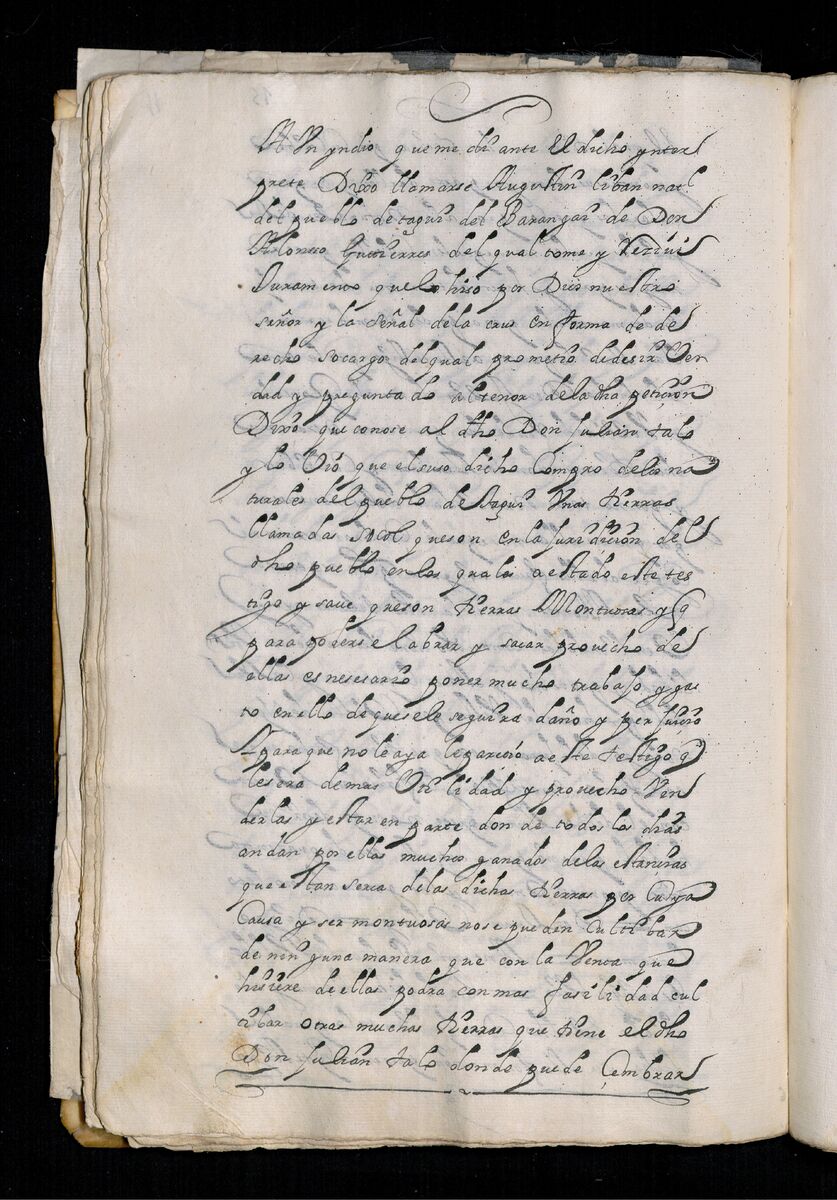 A Vn yndio que mediante El dicho ynter
prete Dixo llamarse Augustin liban natl
del pueblo detaguî del Barangai de Don
Alonsso Gutierres del qual tome y Reziui
Juramento quelo hiso por Dios nuestro
señor y la señal dela crus en forma de de
recho so cargo del qual prometio dedesir Ver
dad y preguntado al tenor dela dha petiçion
Dixo que conose al dho Don Julian talo
y lo Vio que el suso dicho Compro delos na
turales del pueblo de taguî Vnas tierras
llamadas socol que son en la Juridiçion del
dho pueblo en los quales a estado este tes
tigo y saue que son tierras Montuosas y q
para poderse labrar y sacar provecho de
ellas es nesesario poner mucho trabajo y gas
to en ello de que sele seguira daño y per juicio
para que no le aya le parecio a este testigo q
le sera de mas Vtilidad y provecho Ven
derlas y estar en parte donde todos los dias
andan por ellas mucho ganado delas estançias
que estan serca delas dichas tierras por Cuya
Causa y ser montuosas nose pueden Cultibar
de ninguna manera que con la Venta que
hisiere de ellas podra con mas fasilidad cul
tibar otras muchas tierras que tiene el dho
Don Julian talo donde puede Çembrar